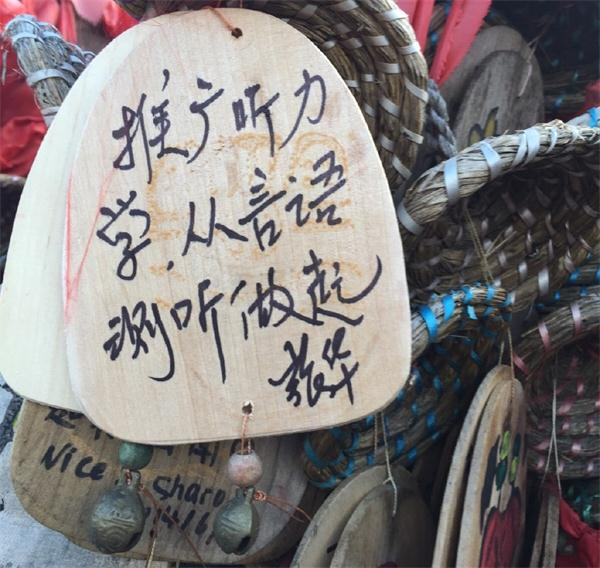 推广听力
学.从言语
测听做起
Nice
Sharo